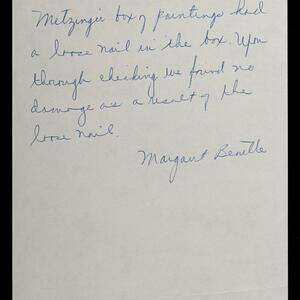 Metzinger box of paintings had
a loose nail in the box. Upon
thorough checking we found no
damage as a result of the
loose nail.
Margaret